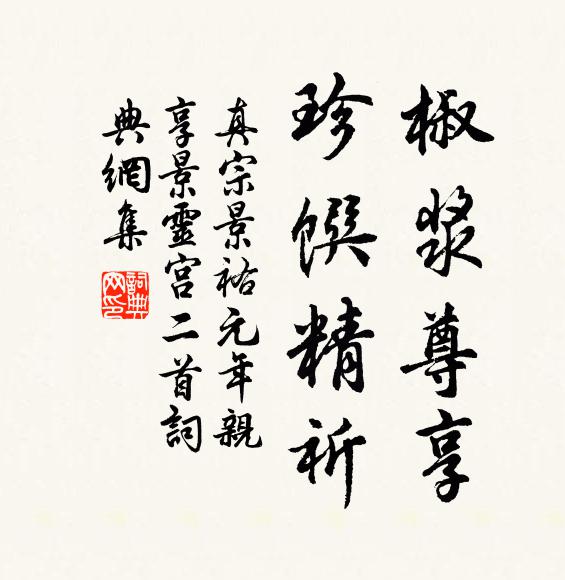 椒漿尊享
珍饌精祈
真宗景祐元年親
享景靈宮二首詞
典網集
詞典
网印